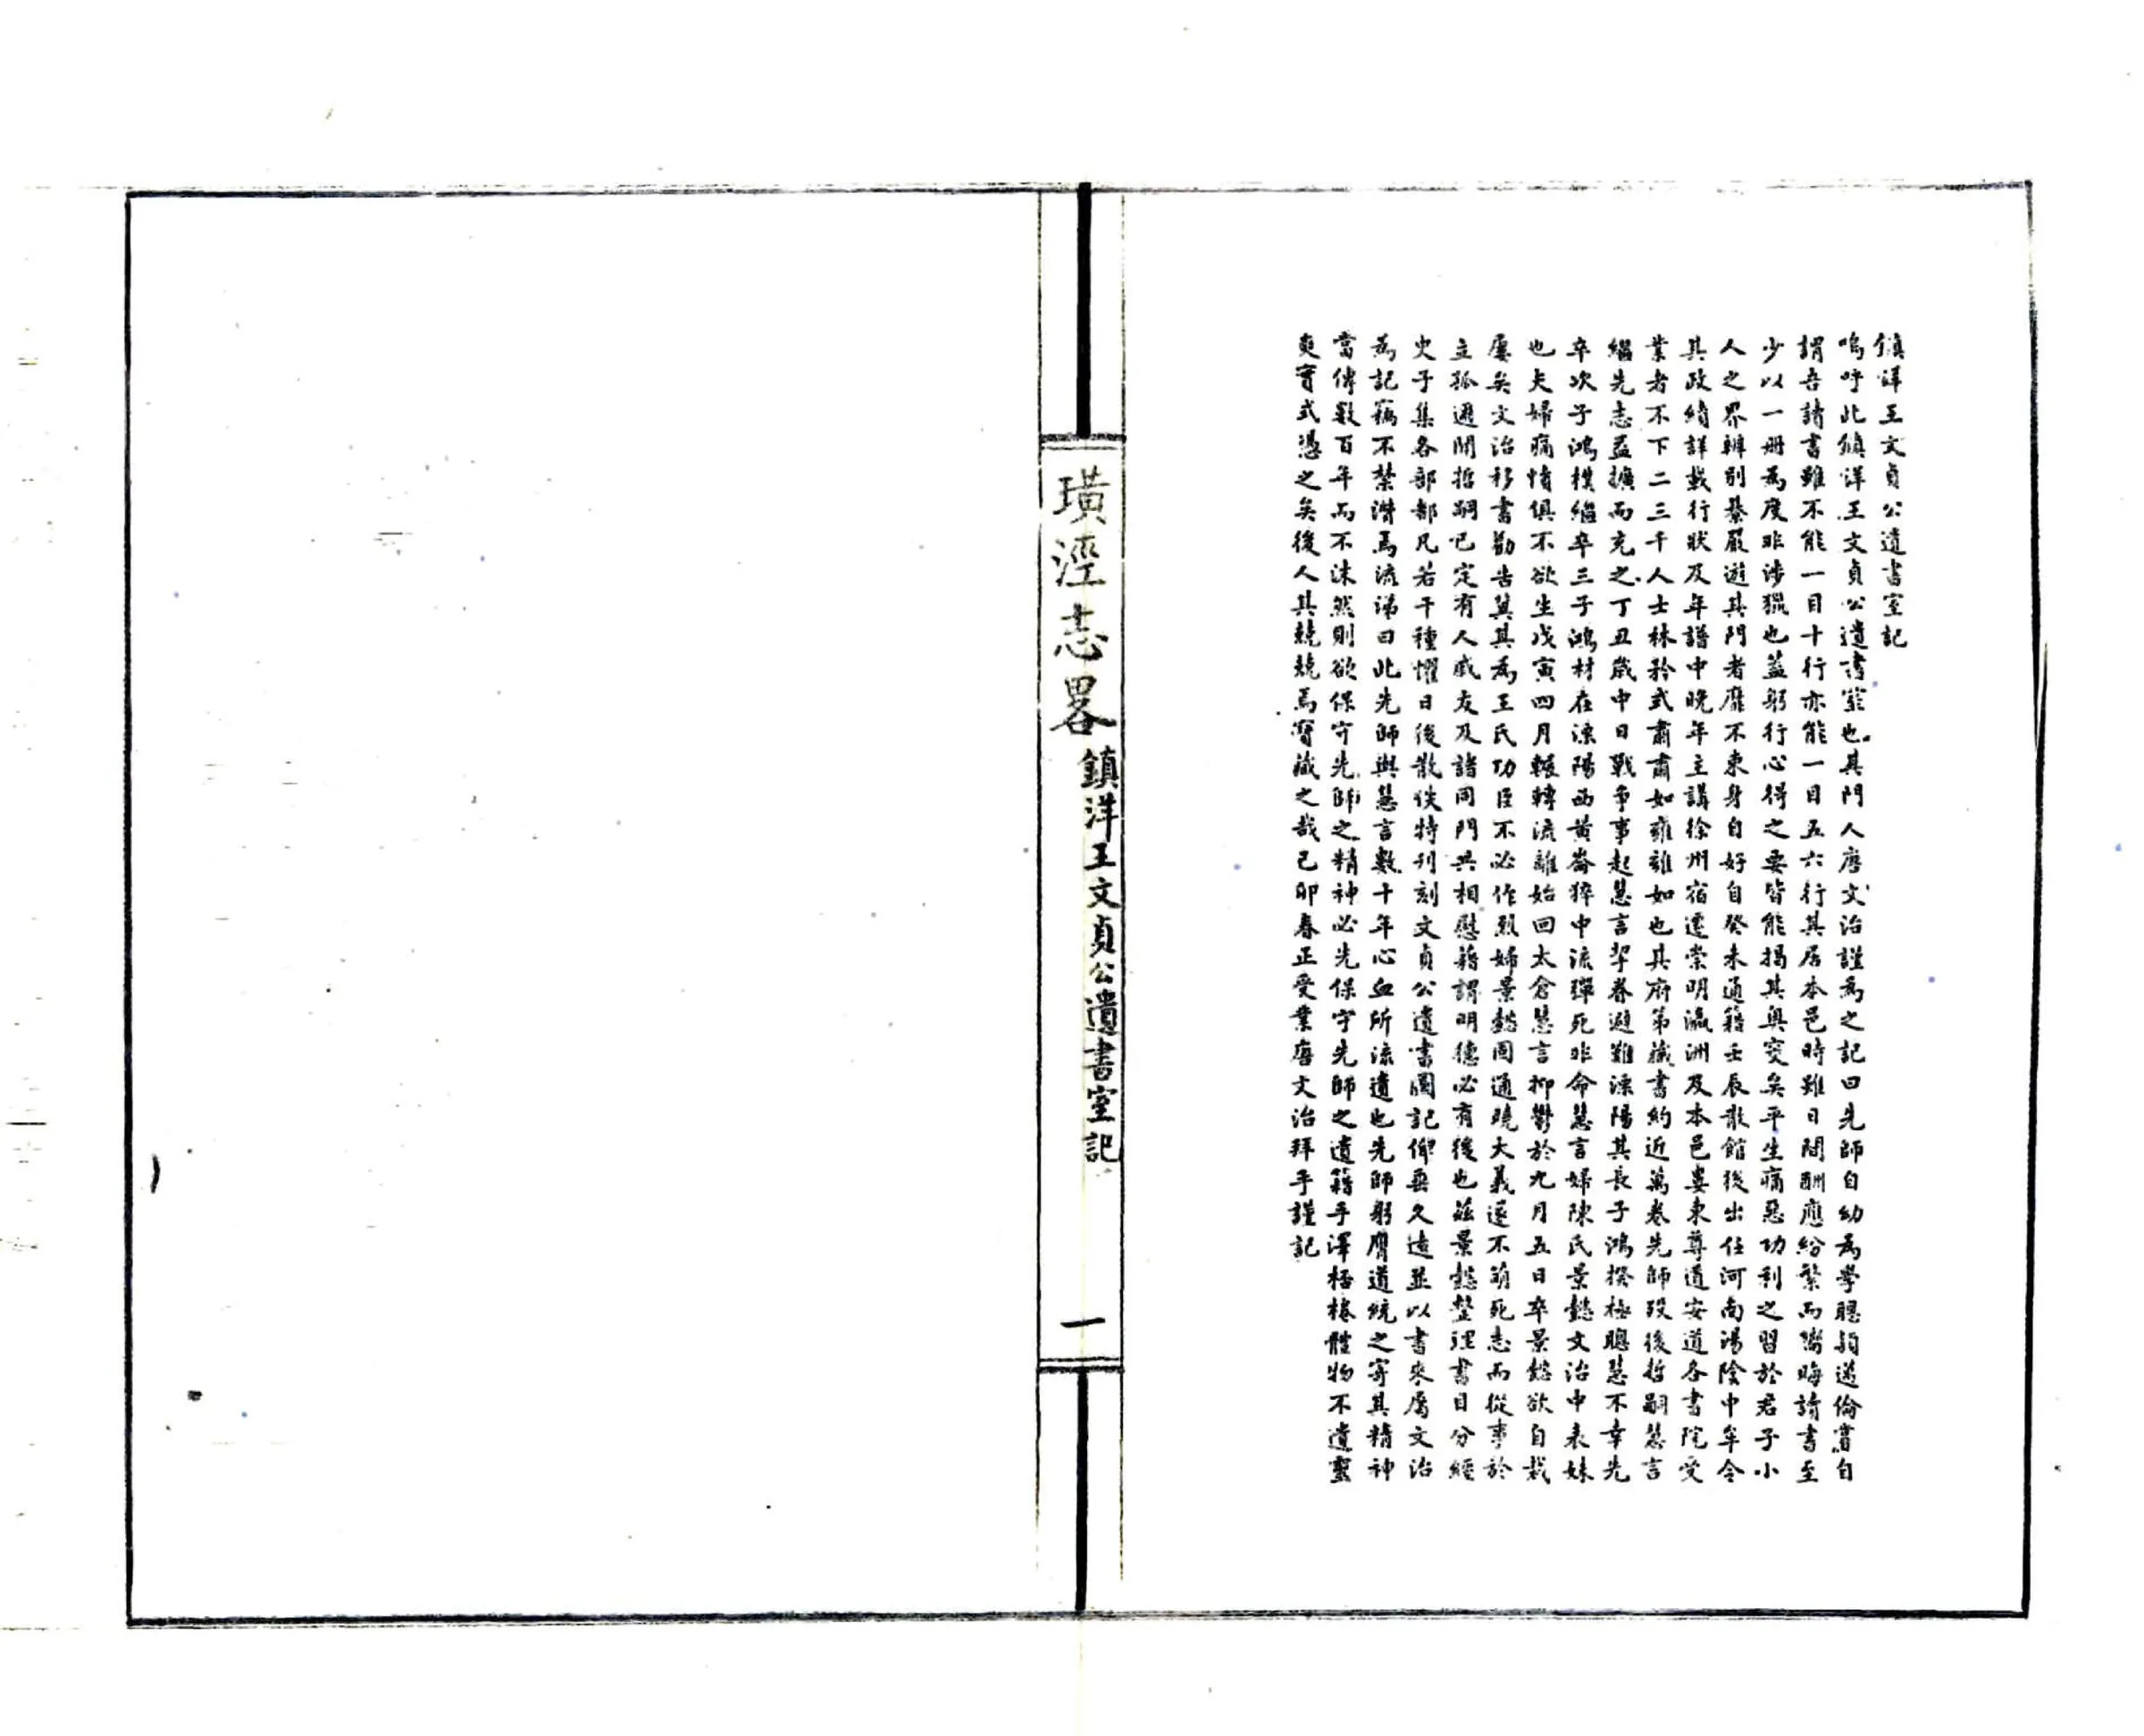 鎮洋王文貞公遺書室記
嗚呼此鎮洋王文貞公遺書室也其門人唐文治謹為之記曰先師自幼為學聰穎邁倫嘗自
謂吾讀書雖不能一目十行亦能一目五六行其居本邑時雖日間酬應紛繁而嚮晦讀書至
少以一冊為度非涉獵也蓋躬行心得之要皆能揭其奧窔矣平生痛惡功利之習於君子小
人之界辨別綦嚴遊其門者靡不束身自好自癸未通籍壬辰散館後出任河南湯陰中牟令
其政績詳載行狀及年譜中晚年主講徐州宿遷崇明瀛洲及本邑婁東尊道安道各書院受
業者不下二三千人士林矜式肅肅如雍雍如也其府第藏書約近萬卷先師歿後哲嗣慧言
繼先志益擴而充之丁丑歲中日戰爭事起慧言挈眷避難溧陽其長子鴻揆極聰慧不幸先
卒次子鴻樸繼卒三子鴻材在溧陽西黃崙猝中流彈死非命慧言婦陳氏景懿文治中表妹
也夫婦痛惰俱不欲生戊寅四月輾轉流離始回太倉慧言抑鬱於九月五日卒景懿欲自裁
屢矣文治移書勸告冀其為王氏功臣不必作烈婦景懿固通曉大義遂不萌死志而從事於
立孤邇聞哲嗣已定有人戚友及諸同門共相慰藉謂明德必有後也茲景懿整理書目分經
史子集各部都凡若干種懼日後散佚特刊刻文貞公遺書圖記俾垂久遠並以書來屬文治
為記竊不禁潸焉流涕曰此先師與慧言數十年心血所流遺也先師躬膺道統之寄其精神
當傳數百年而不沬然則欲保守先師之精神必先保守先師之遺籍手澤桮棬體物不遺靈
爽實式憑之矣後人其兢兢焉寶藏之哉己卯春正受業唐文治拜手謹記
璜涇志畧
鎮洋王文貞公遺書室記
一